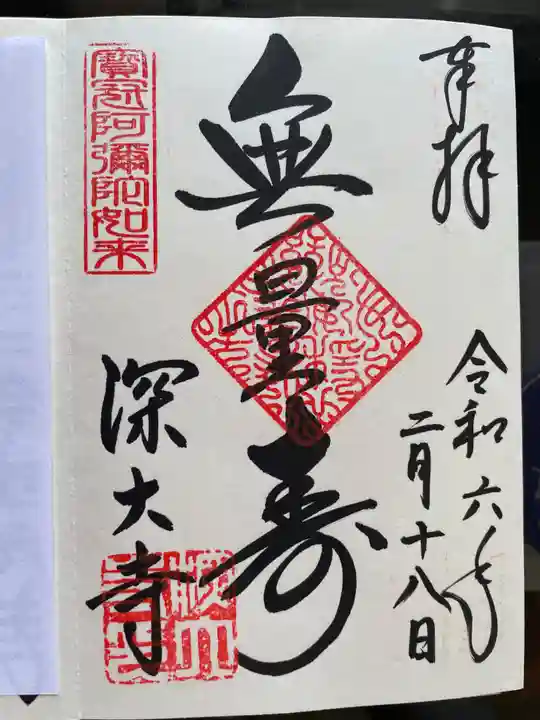 奉拝
令和六年
二月十八日
無量寿
寶冠阿彌陀如来
深大寺